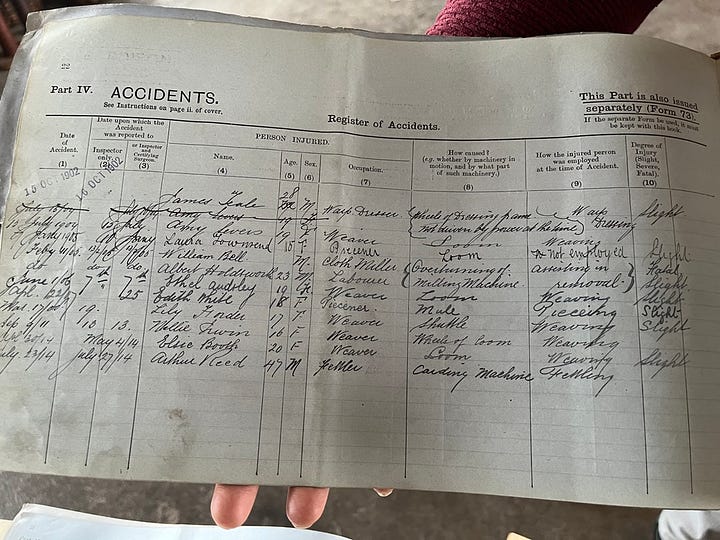 22
Part IV. ACCIDENTS.
See Instructions on page ii. of cover.
This Part is also issued
separately (Form 73).
If the separate Form be used, it must
be kept with this book.
Register of Accidents.
Date of Accident. (1)
Date upon which the Accident was reported to
Inspector only. (2)
or Inspector and Certifying Surgeon. (3)
PERSON INJURED.
Name. (4)
Age. (5)
Sex. (6)
Occupation. (7)
How caused? (e.g. whether by machinery in motion, and by what part of such machinery.) (8)
How the injured person was employed at the time of Accident. (9)
Degree of Injury (Slight, Severe, Fatal). (10)
15 OCT 1902
10 OCT 1902
James 28 M Warp Dresser Wheels of Dressing frame Warp Slight
not driven by power at the time Dressing
July 1904 15 July Amy 19 F Weaver Loom Weaving Slight
Laura Townsend 15 F Piecener Loom not employed
William Bell M. Cloth Miller Overturning of assisting in Fatal
do do Albert Holdsworth 23 M Labourer Milling Machine removal Slight
June 1/06 7th 7th Ethel Audsley 19 F Weaver Loom Weaving Slight
25 Edith 18 F Piecener Mule Piecening Slight
19. Lily 17 F Weaver Shuttle Weaving Slight
Sep 9/11 10 13. Nellie Irwin 16 F Weaver Wheels of Loom Weaving
May 4/14 Elsie Booth 20 F Weaver Loom Weaving Slight
July 23/14 July 27/14 Arthur Reed 47 M Fettler Carding Machine Fettling